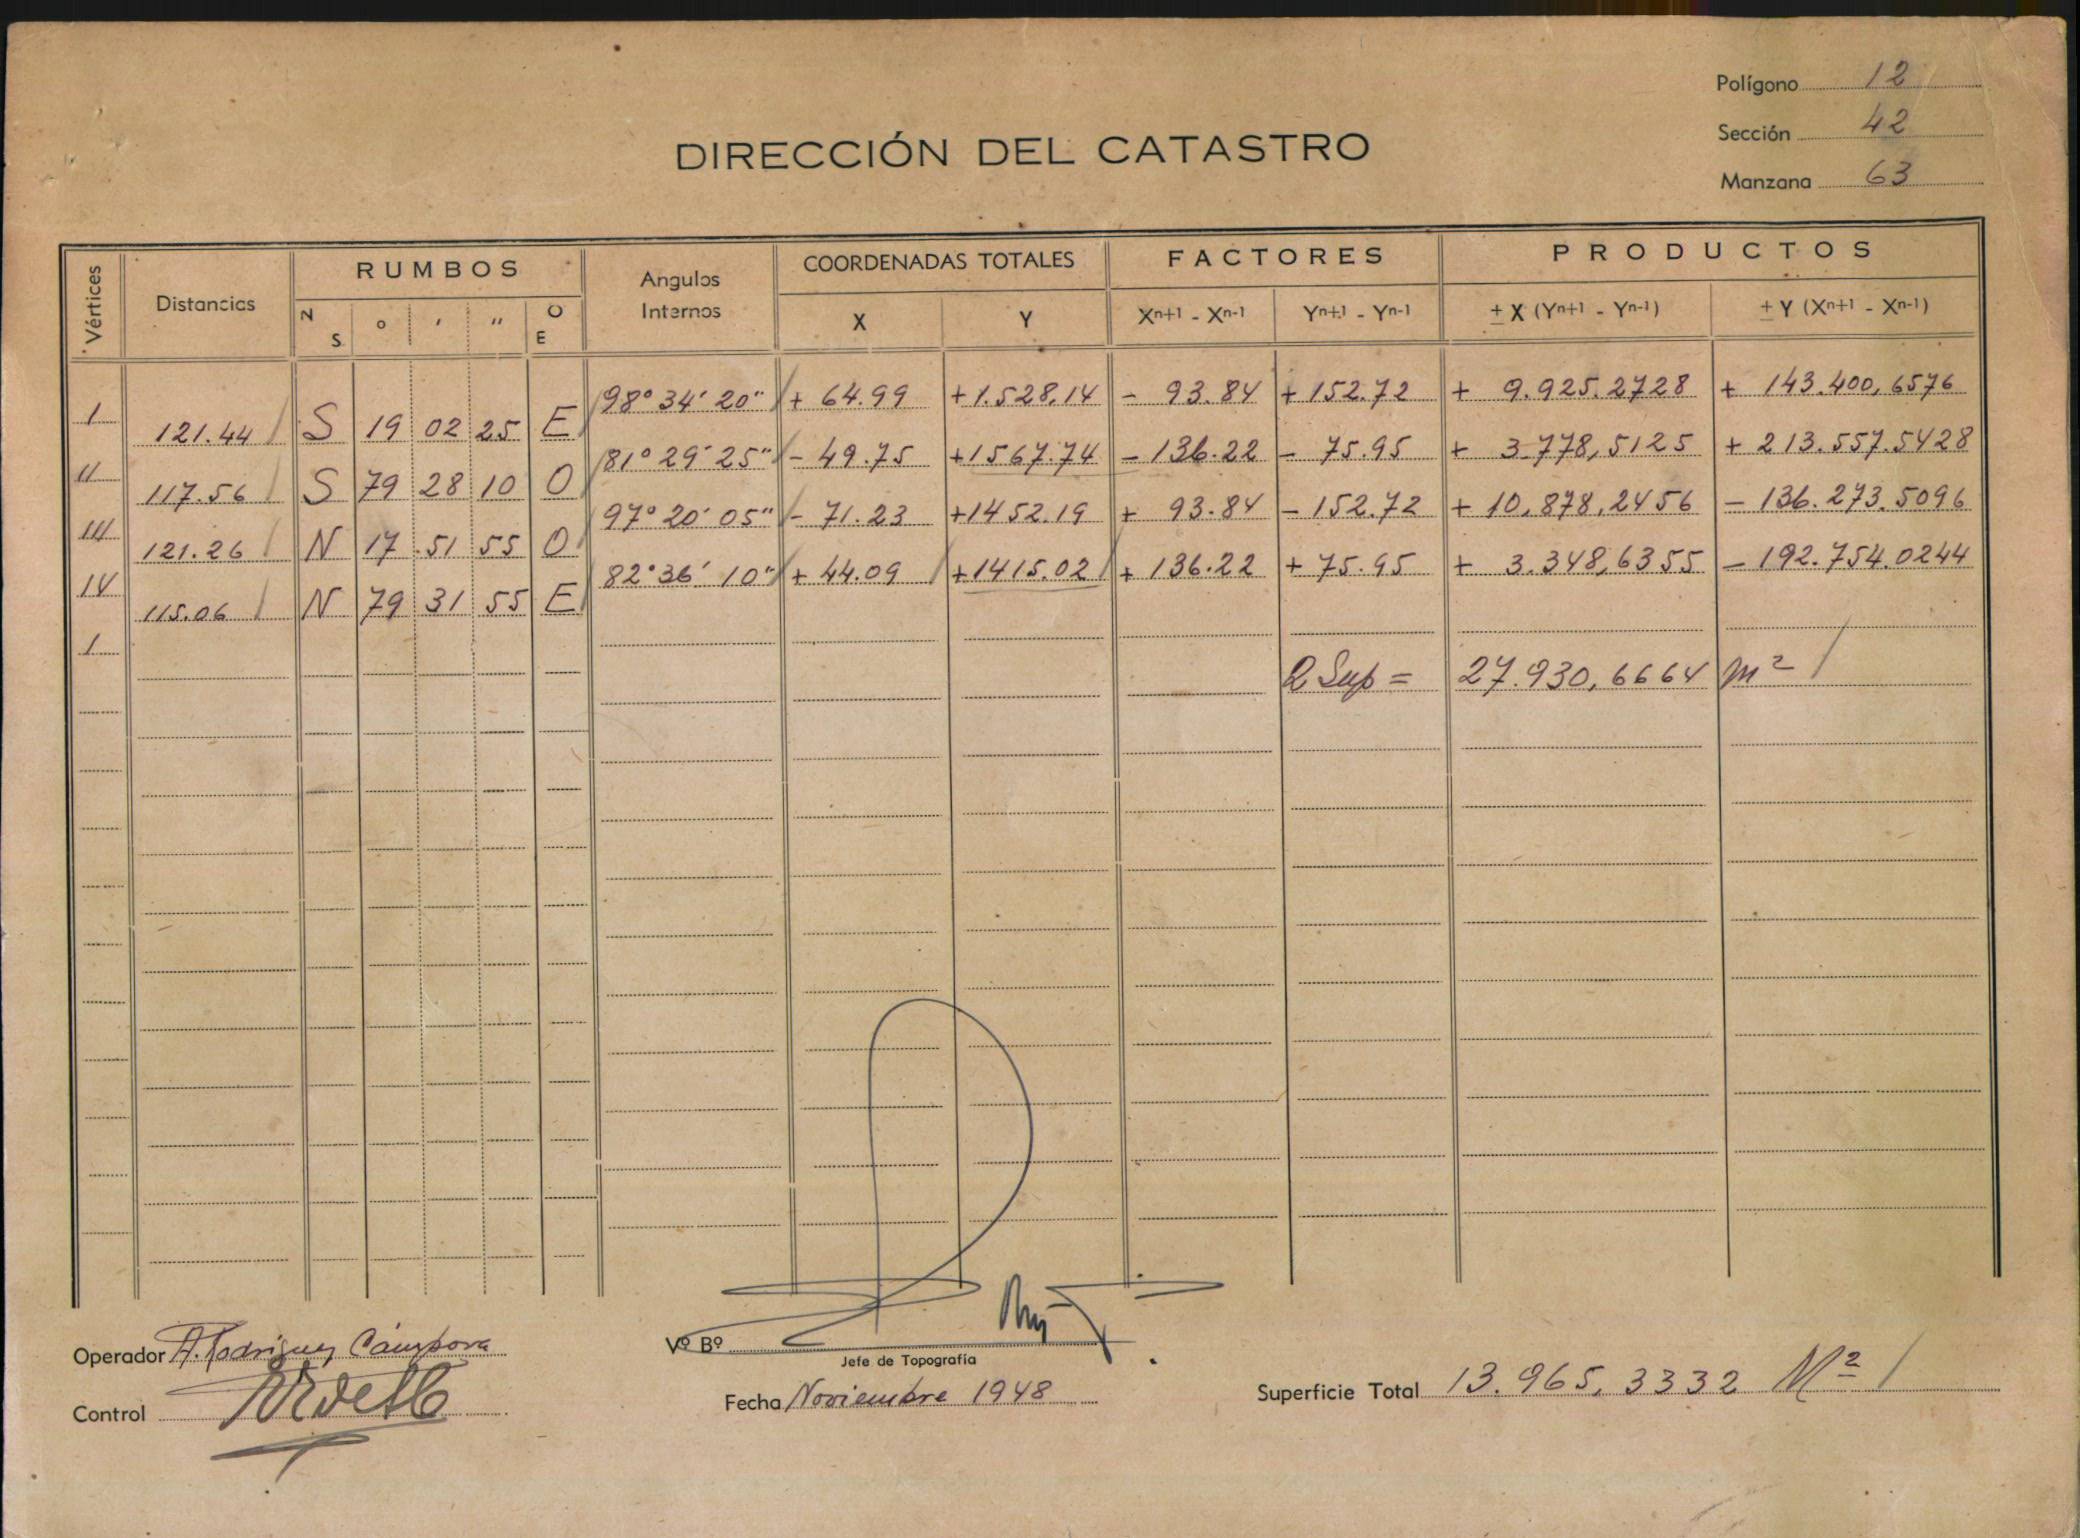 Polígono 12
Sección 42
Manzana 63
DIRECCIÓN DEL CATASTRO
Vértices Distancias RUMBOS Angulos Internos COORDENADAS TOTALES FACTORES PRODUCTOS
N S o ' " O E X Y Xn+1 - Xn-1 Yn+1 - Yn-1 ± X (Yn+1 - Yn-1) ± Y (Xn+1 - Xn-1)
I 98° 34' 20" + 64.99 +1.528,14 - 93.84 +152.72 + 9.925.2728 + 143.400,6576
121.44 S 19 02 25 E
II 81° 29' 25" - 49.75 +1567.74 - 136.22 - 75.95 + 3.778,5125 + 213.557.5428
117.56 S 79 28 10 O
III 97° 20' 05" - 71.23 +1452.19 + 93.84 - 152.72 + 10.878,2456 - 136.273.5096
121.26 N 17 51 55 O
IV 82° 36' 10" + 44.09 +1415.02 + 136.22 + 75.95 + 3.348,6355 - 192.754.0244
115.06 N 79 31 55 E
I
2 Sup = 27.930,6664 m²
Operador A. Rodriguez Cámpora
Vº Bº
Jefe de Topografía
Control
Fecha Noviembre 1948
Superficie Total 13.965,3332 M²